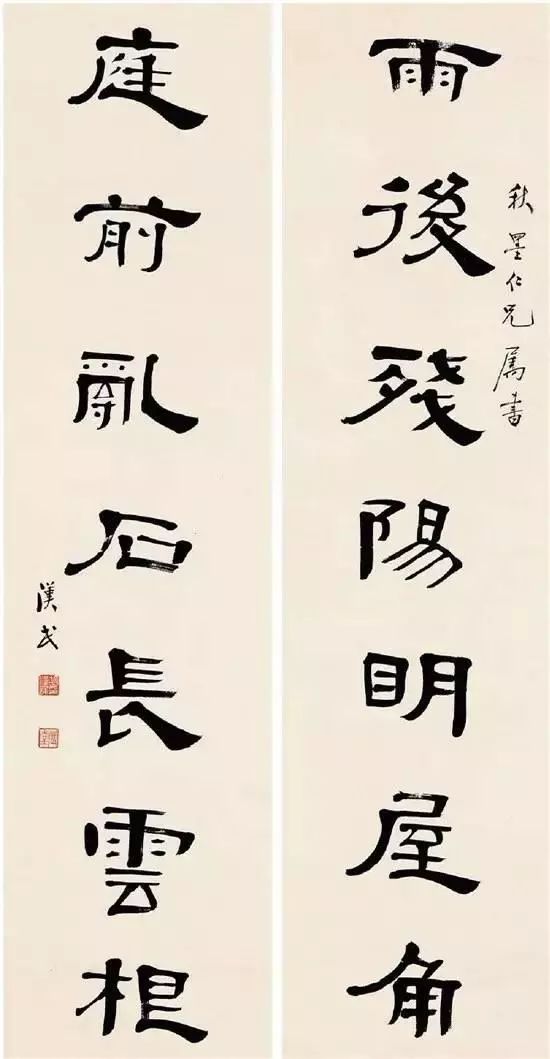 雨後殘陽明屋角
秋墨仁兄屬書
庭前亂石長雲根
漢民